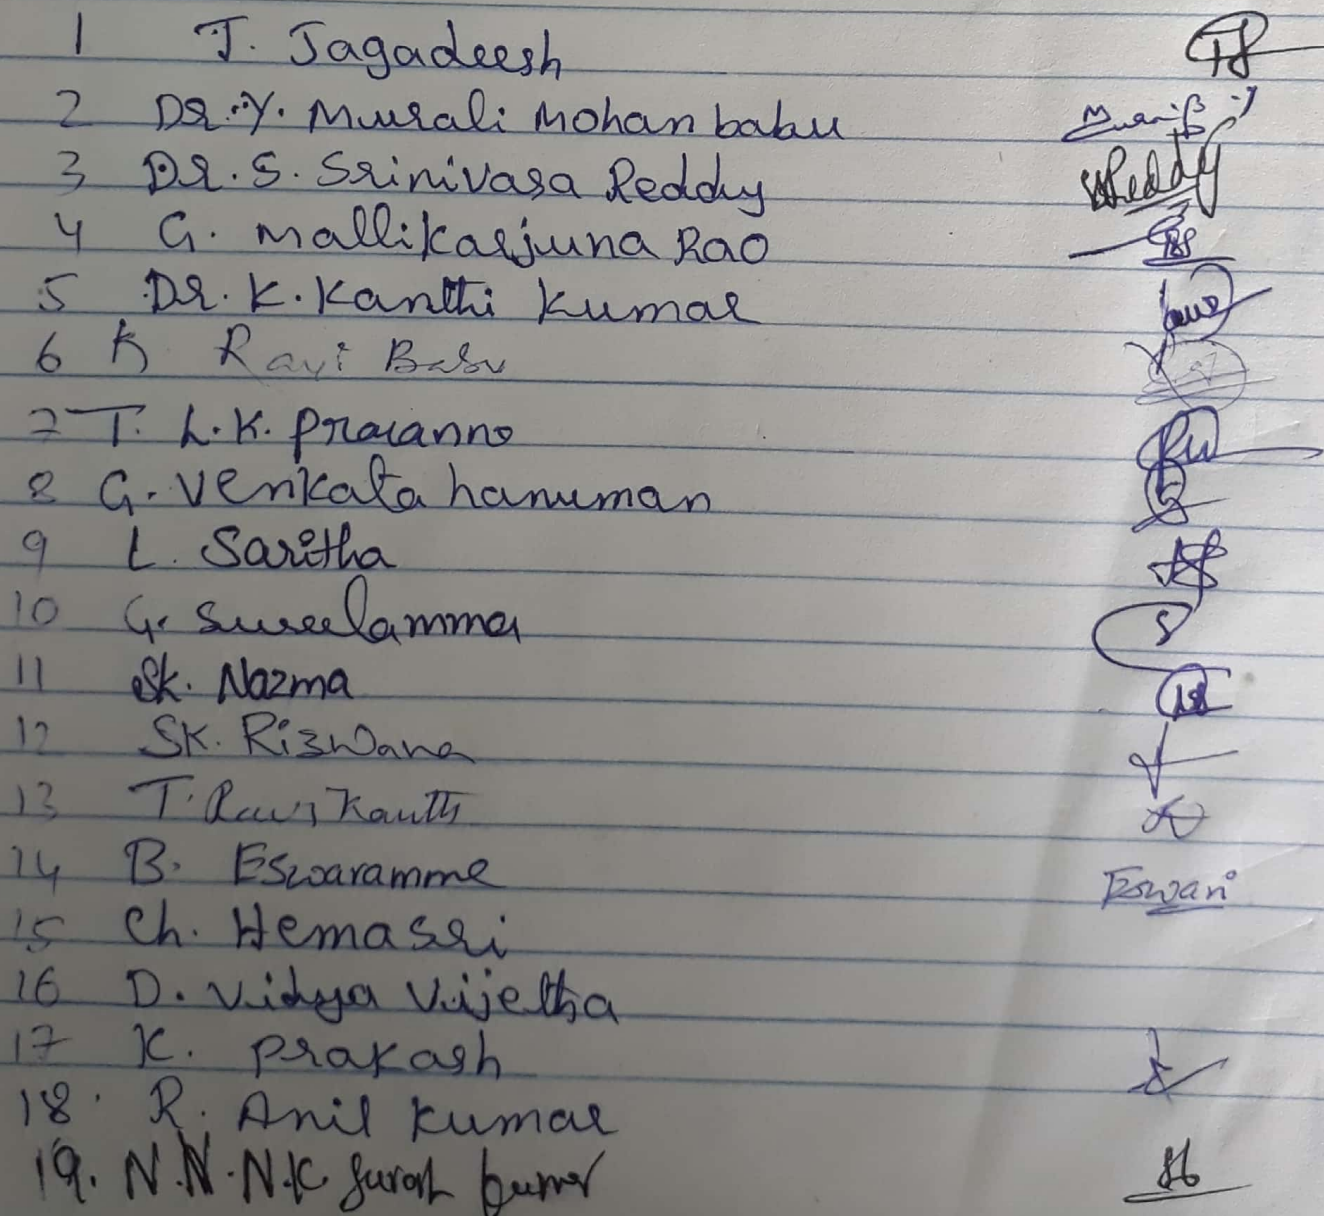 1 J. Jagadeesh
2 Dr. Y. Murali Mohan babu
3 Dr. S. Srinivasa Reddy Reddy
4 G. Mallikarjuna Rao
5 Dr. K. Kanthi Kumar
6 K Ravi Babu
7 T. L. K. Prasanna
8 G. Venkata hanuman
9 L. Saritha
10 G. Suseelamma S
11 Sk. Nazma
12 SK. Rizwana
13 T. Ravi Kanth
14 B. Eswaramma Eswari
15 Ch. Hemasri
16 D. Vidya Vijetha
17 K. Prakash
18. R. Anil Kumar
19. N.N.N.K Suresh kumar